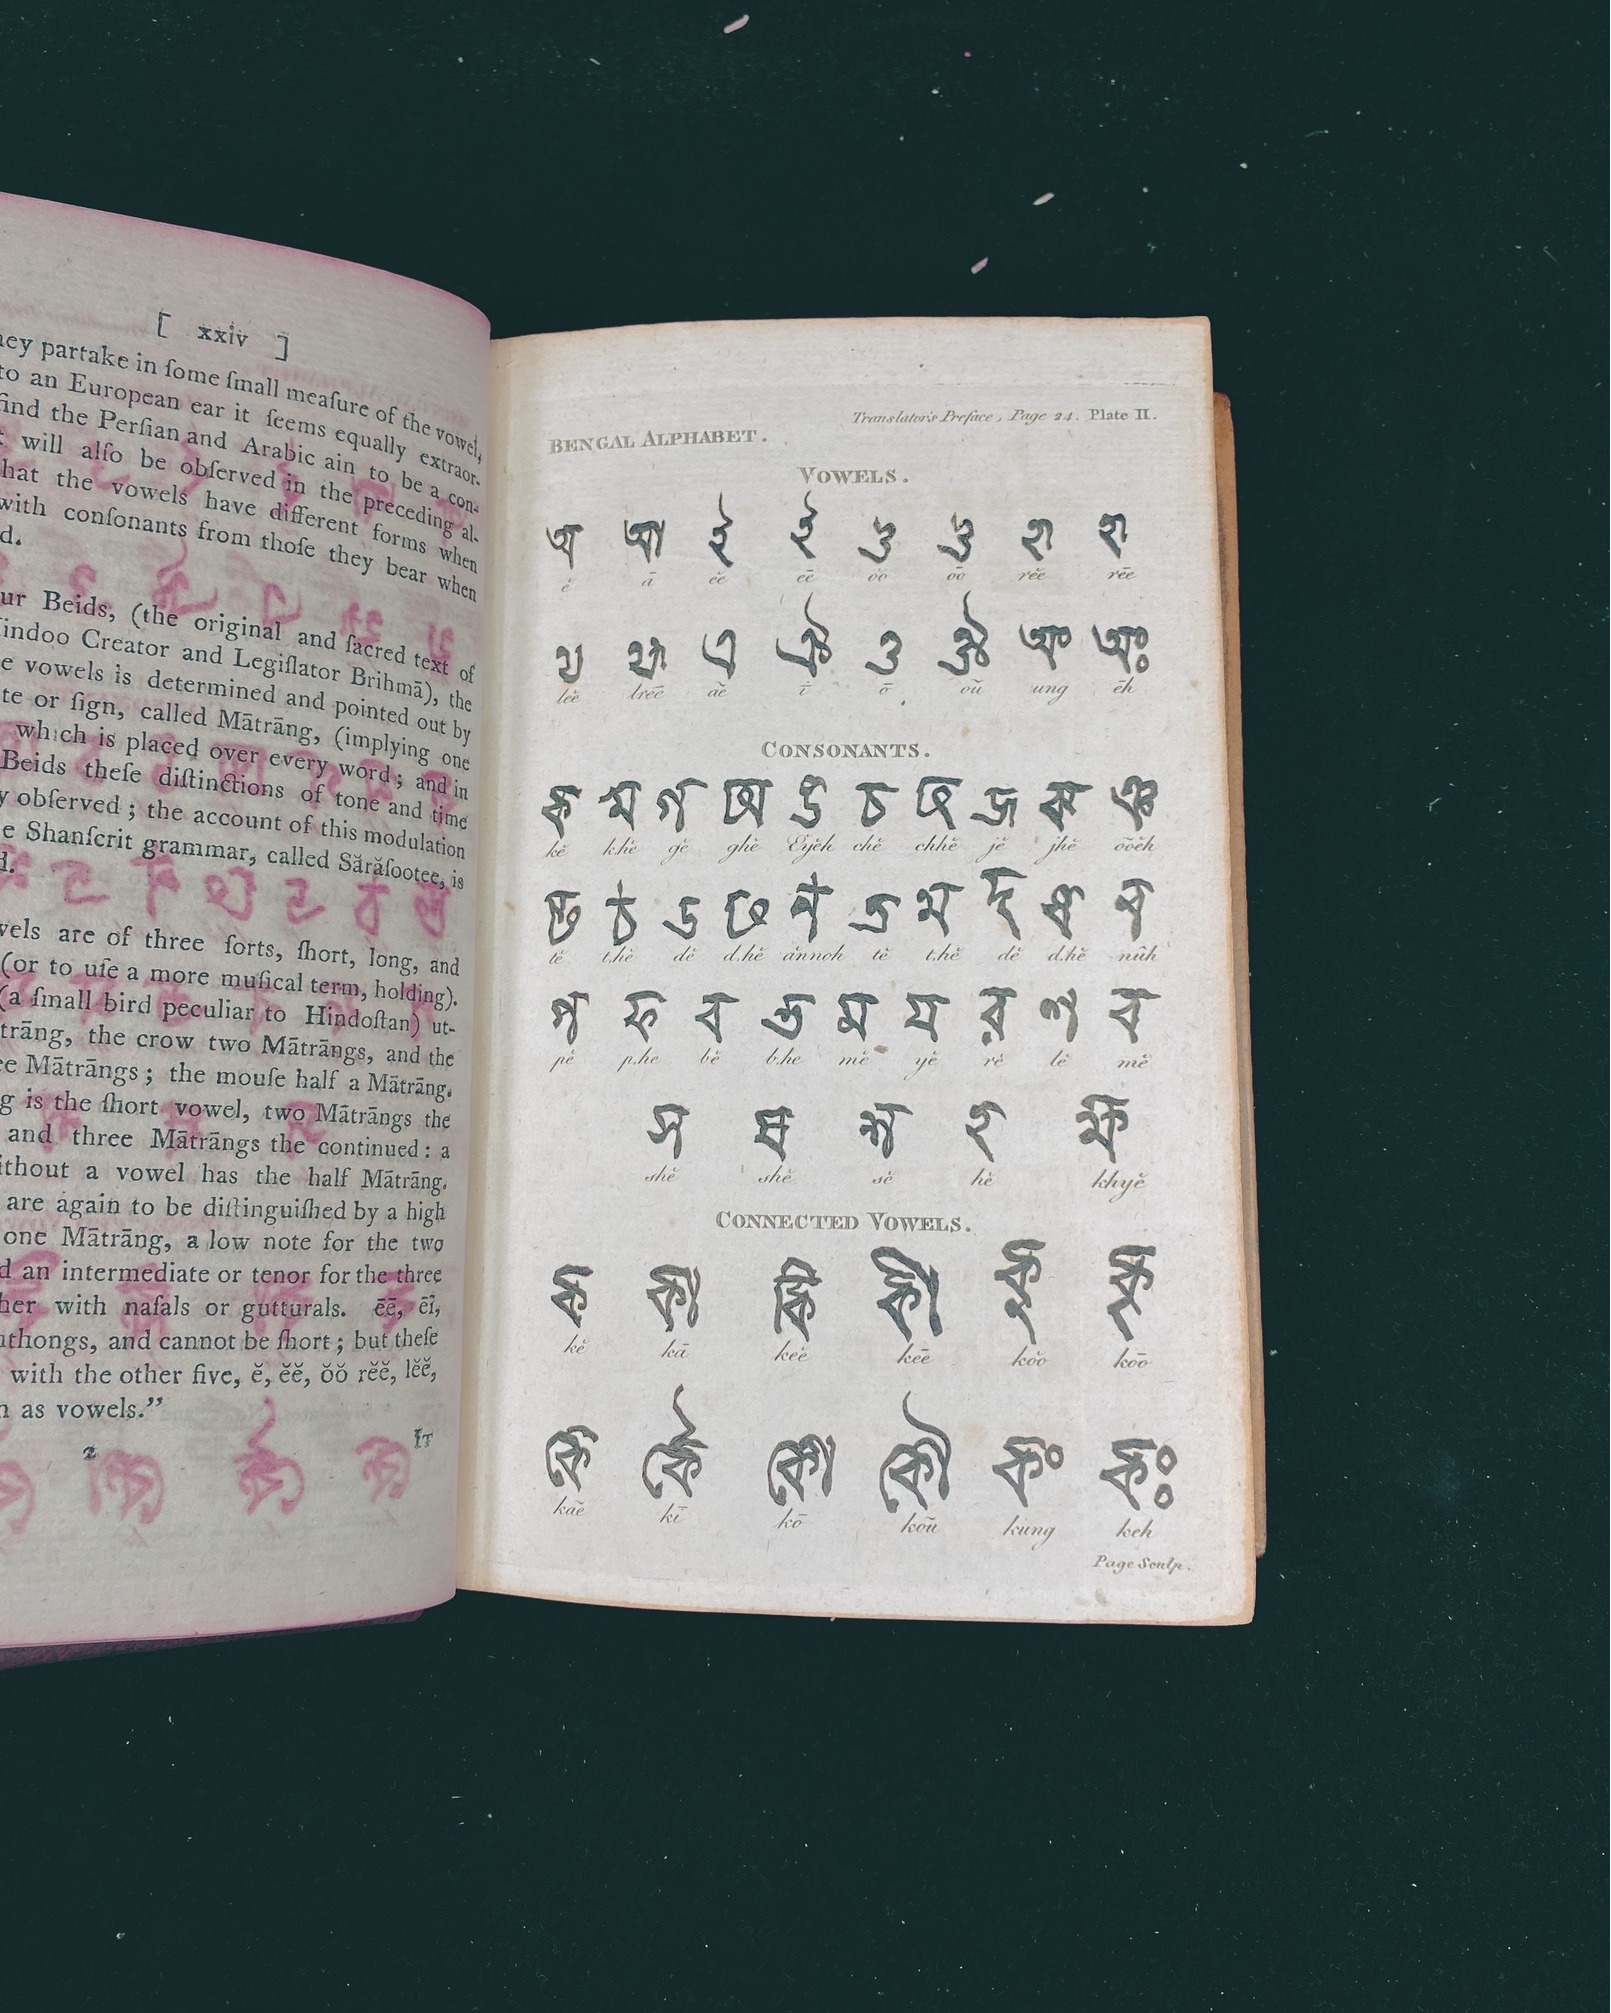 [ xxiv ]
hey partake in ſome ſmall meaſure of the vowel,
to an European ear it ſeems equally extraor-
find the Perſian and Arabic ain to be a con-
t will alſo be obſerved in the preceding al-
hat the vowels have different forms when
with conſonants from thoſe they bear when
d.
ur Beids, (the original and ſacred text of
indoo Creator and Legiſlator Brihmā), the
e vowels is determined and pointed out by
te or ſign, called Mātrāng, (implying one
which is placed over every word; and in
Beids theſe diſtinctions of tone and time
y obſerved; the account of this modulation
e Shanſcrit grammar, called Sărăſootee, is
d.
wels are of three ſorts, ſhort, long, and
(or to uſe a more muſical term, holding).
(a ſmall bird peculiar to Hindoſtan) ut-
trāng, the crow two Mātrāngs, and the
ee Mātrāngs; the mouſe half a Mātrāng.
g is the ſhort vowel, two Mātrāngs the
and three Mātrāngs the continued: a
ithout a vowel has the half Mātrāng.
are again to be diſtinguiſhed by a high
one Mātrāng, a low note for the two
d an intermediate or tenor for the three
her with naſals or gutturals. ēē, ēī,
hthongs, and cannot be ſhort; but theſe
with the other five, ĕ, ĕĕ, ŏŏ rĕĕ, lĕĕ,
n as vowels.”
2 IT
Translator's Preface, Page 24. Plate II.
BENGAL ALPHABET.
VOWELS.
অ আ ই ঈ উ ঊ ঋ ৠ
ĕ ā ĕĕ ēē ŏŏ ōō rĕĕ rēē
ঌ ৡ এ ঐ ও ঔ অং অঃ
lĕĕ lrēē āĕ ī ō oŭ ung ĕh
CONSONANTS.
ক খ গ ঘ ঙ চ ছ জ ঝ ঞ
kĕ k.hĕ gĕ ghĕ chĕ chhĕ jĕ jhĕ
ট ঠ ড ঢ ণ ত থ দ ধ ন
tĕ t.hĕ dĕ d.hĕ ănnoh tĕ t.hĕ dĕ d.hĕ nŭh
প ফ ব ভ ম য র ল ব
pĕ p.he bĕ b.he mĕ yĕ rĕ lĕ mĕ
শ ষ স হ ক্ষ
shĕ shĕ sĕ hĕ khyĕ
CONNECTED VOWELS.
ক কা কি কী কু কূ
kĕ kā keĕ kēē kŏo kōo
কে কৈ কো কৌ কং কঃ
kāĕ kī kō koŭ kung keh
Page Sculp.